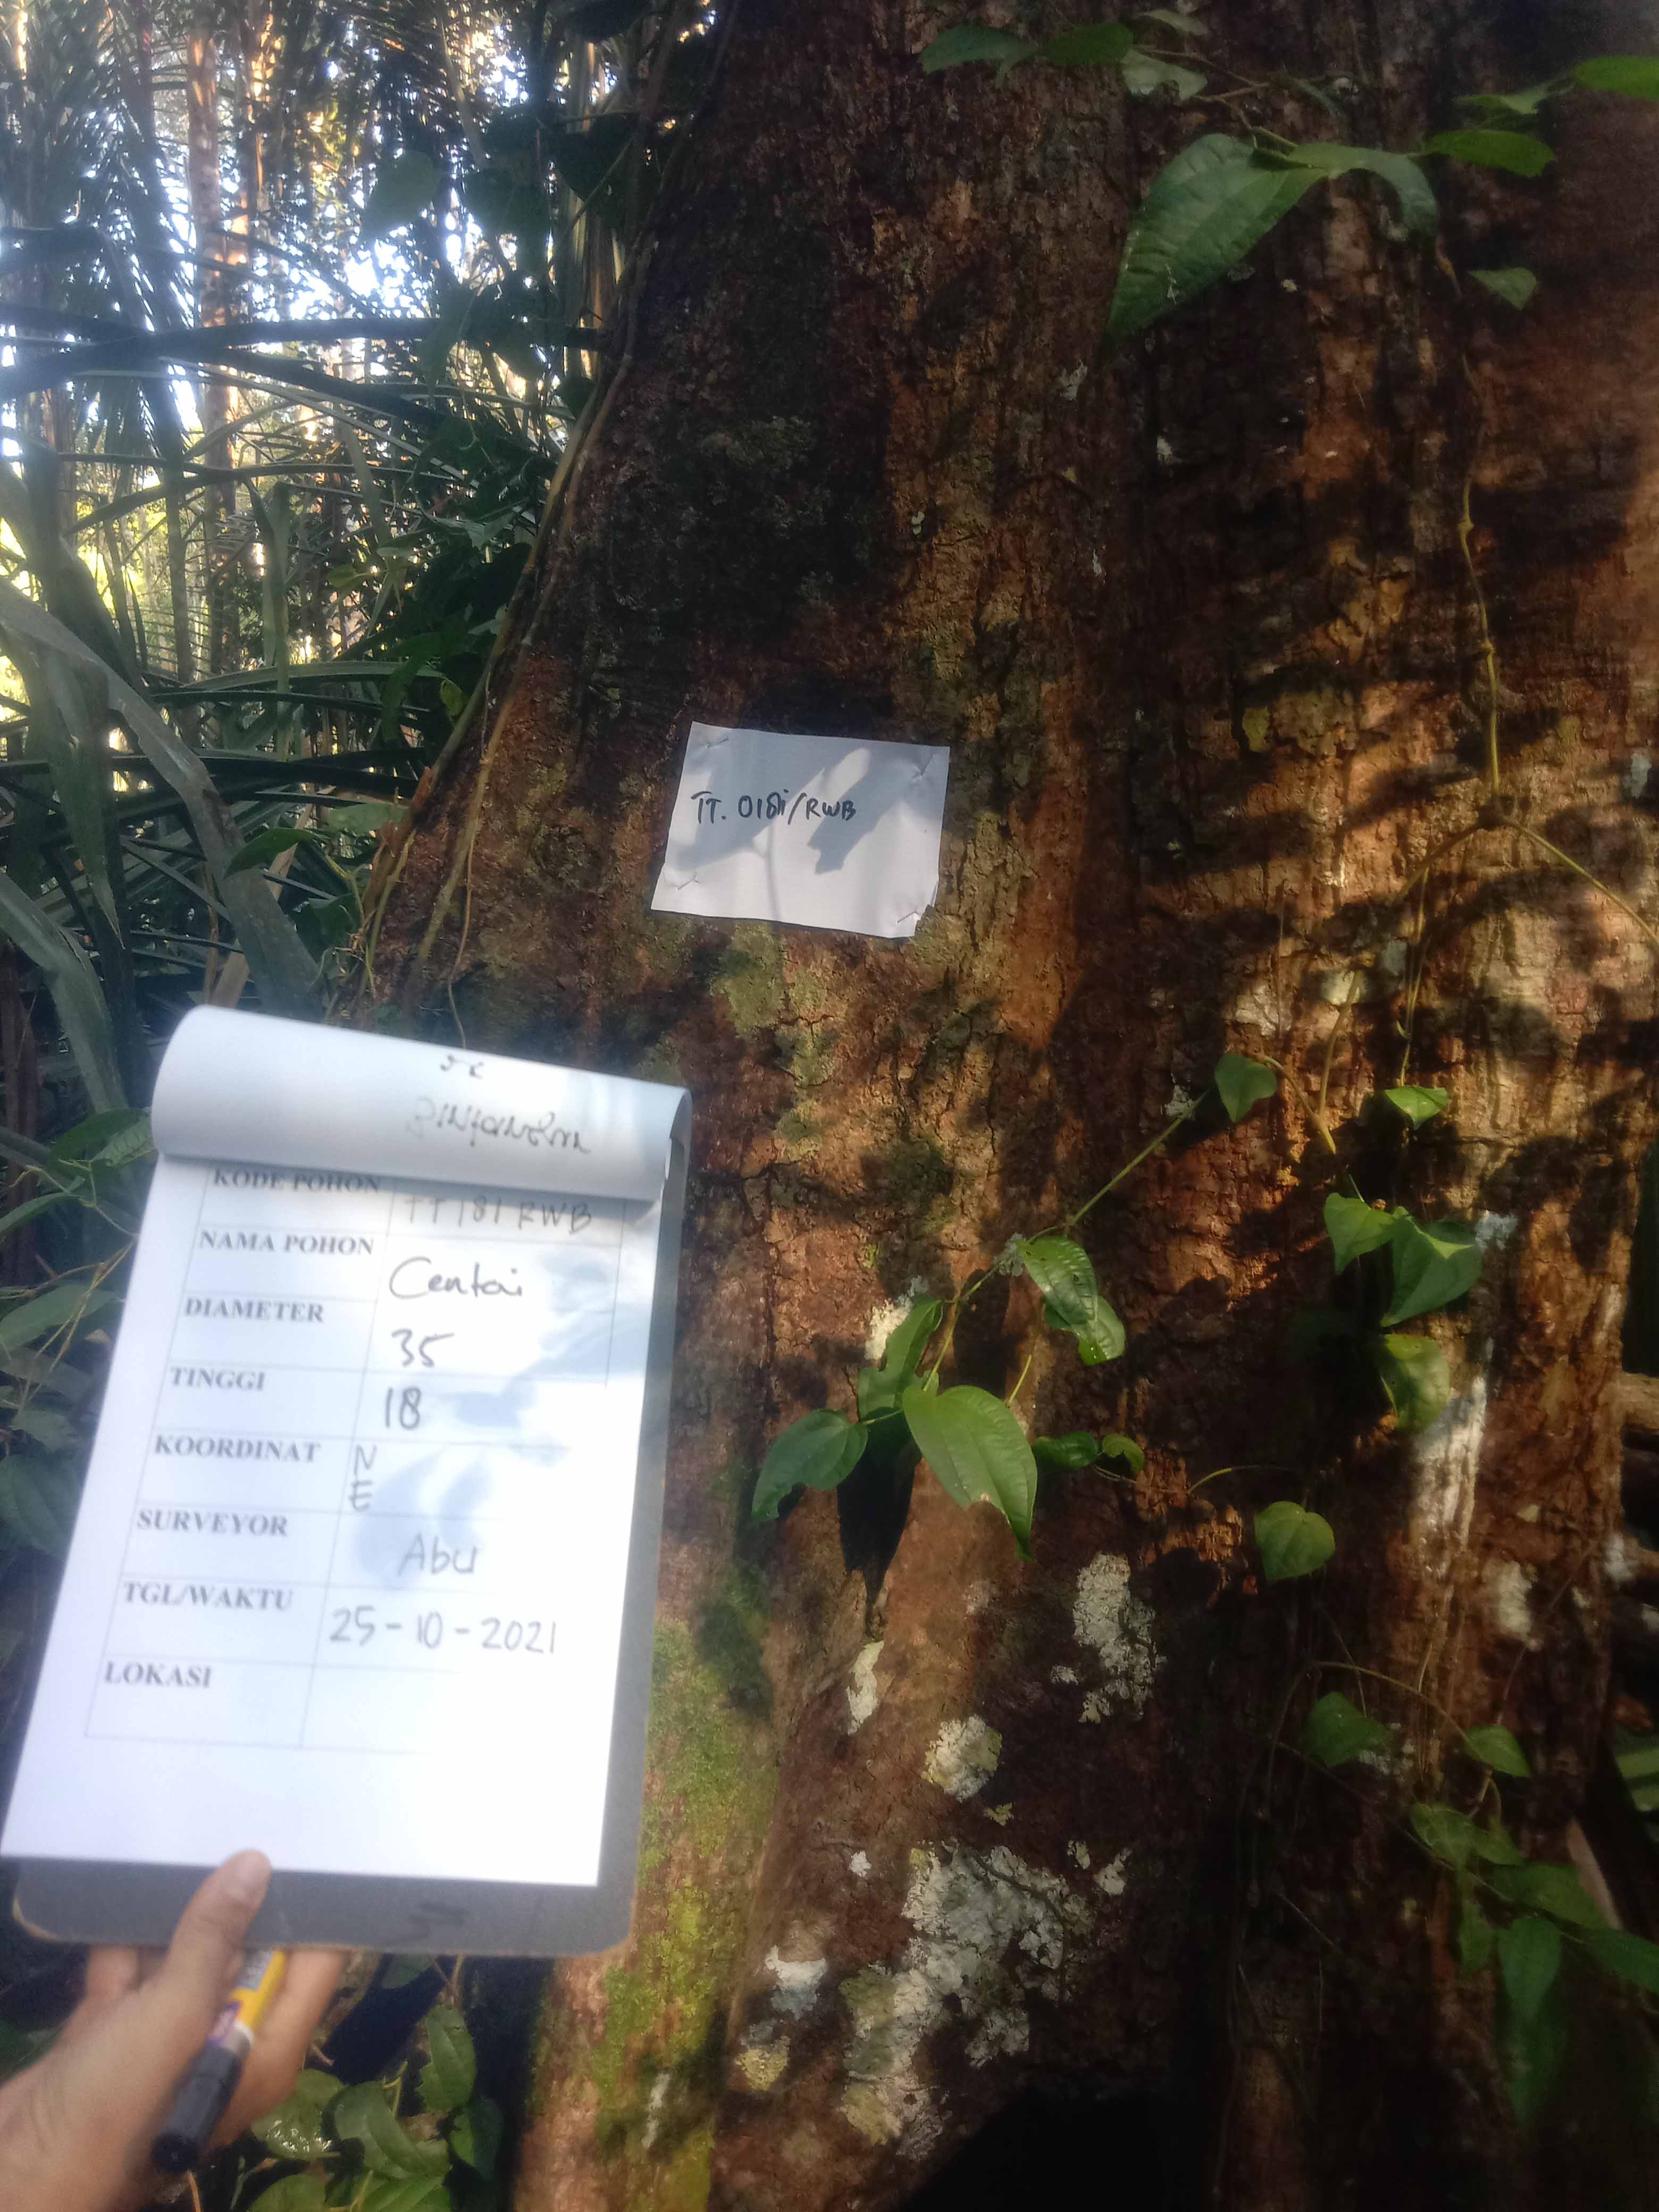 TT. 0181/RWB
KODE POHON TT 181 RWB
NAMA POHON Centai
DIAMETER 35
TINGGI 18
KOORDINAT N
E
SURVEYOR Abu
TGL/WAKTU 25-10-2021
LOKASI